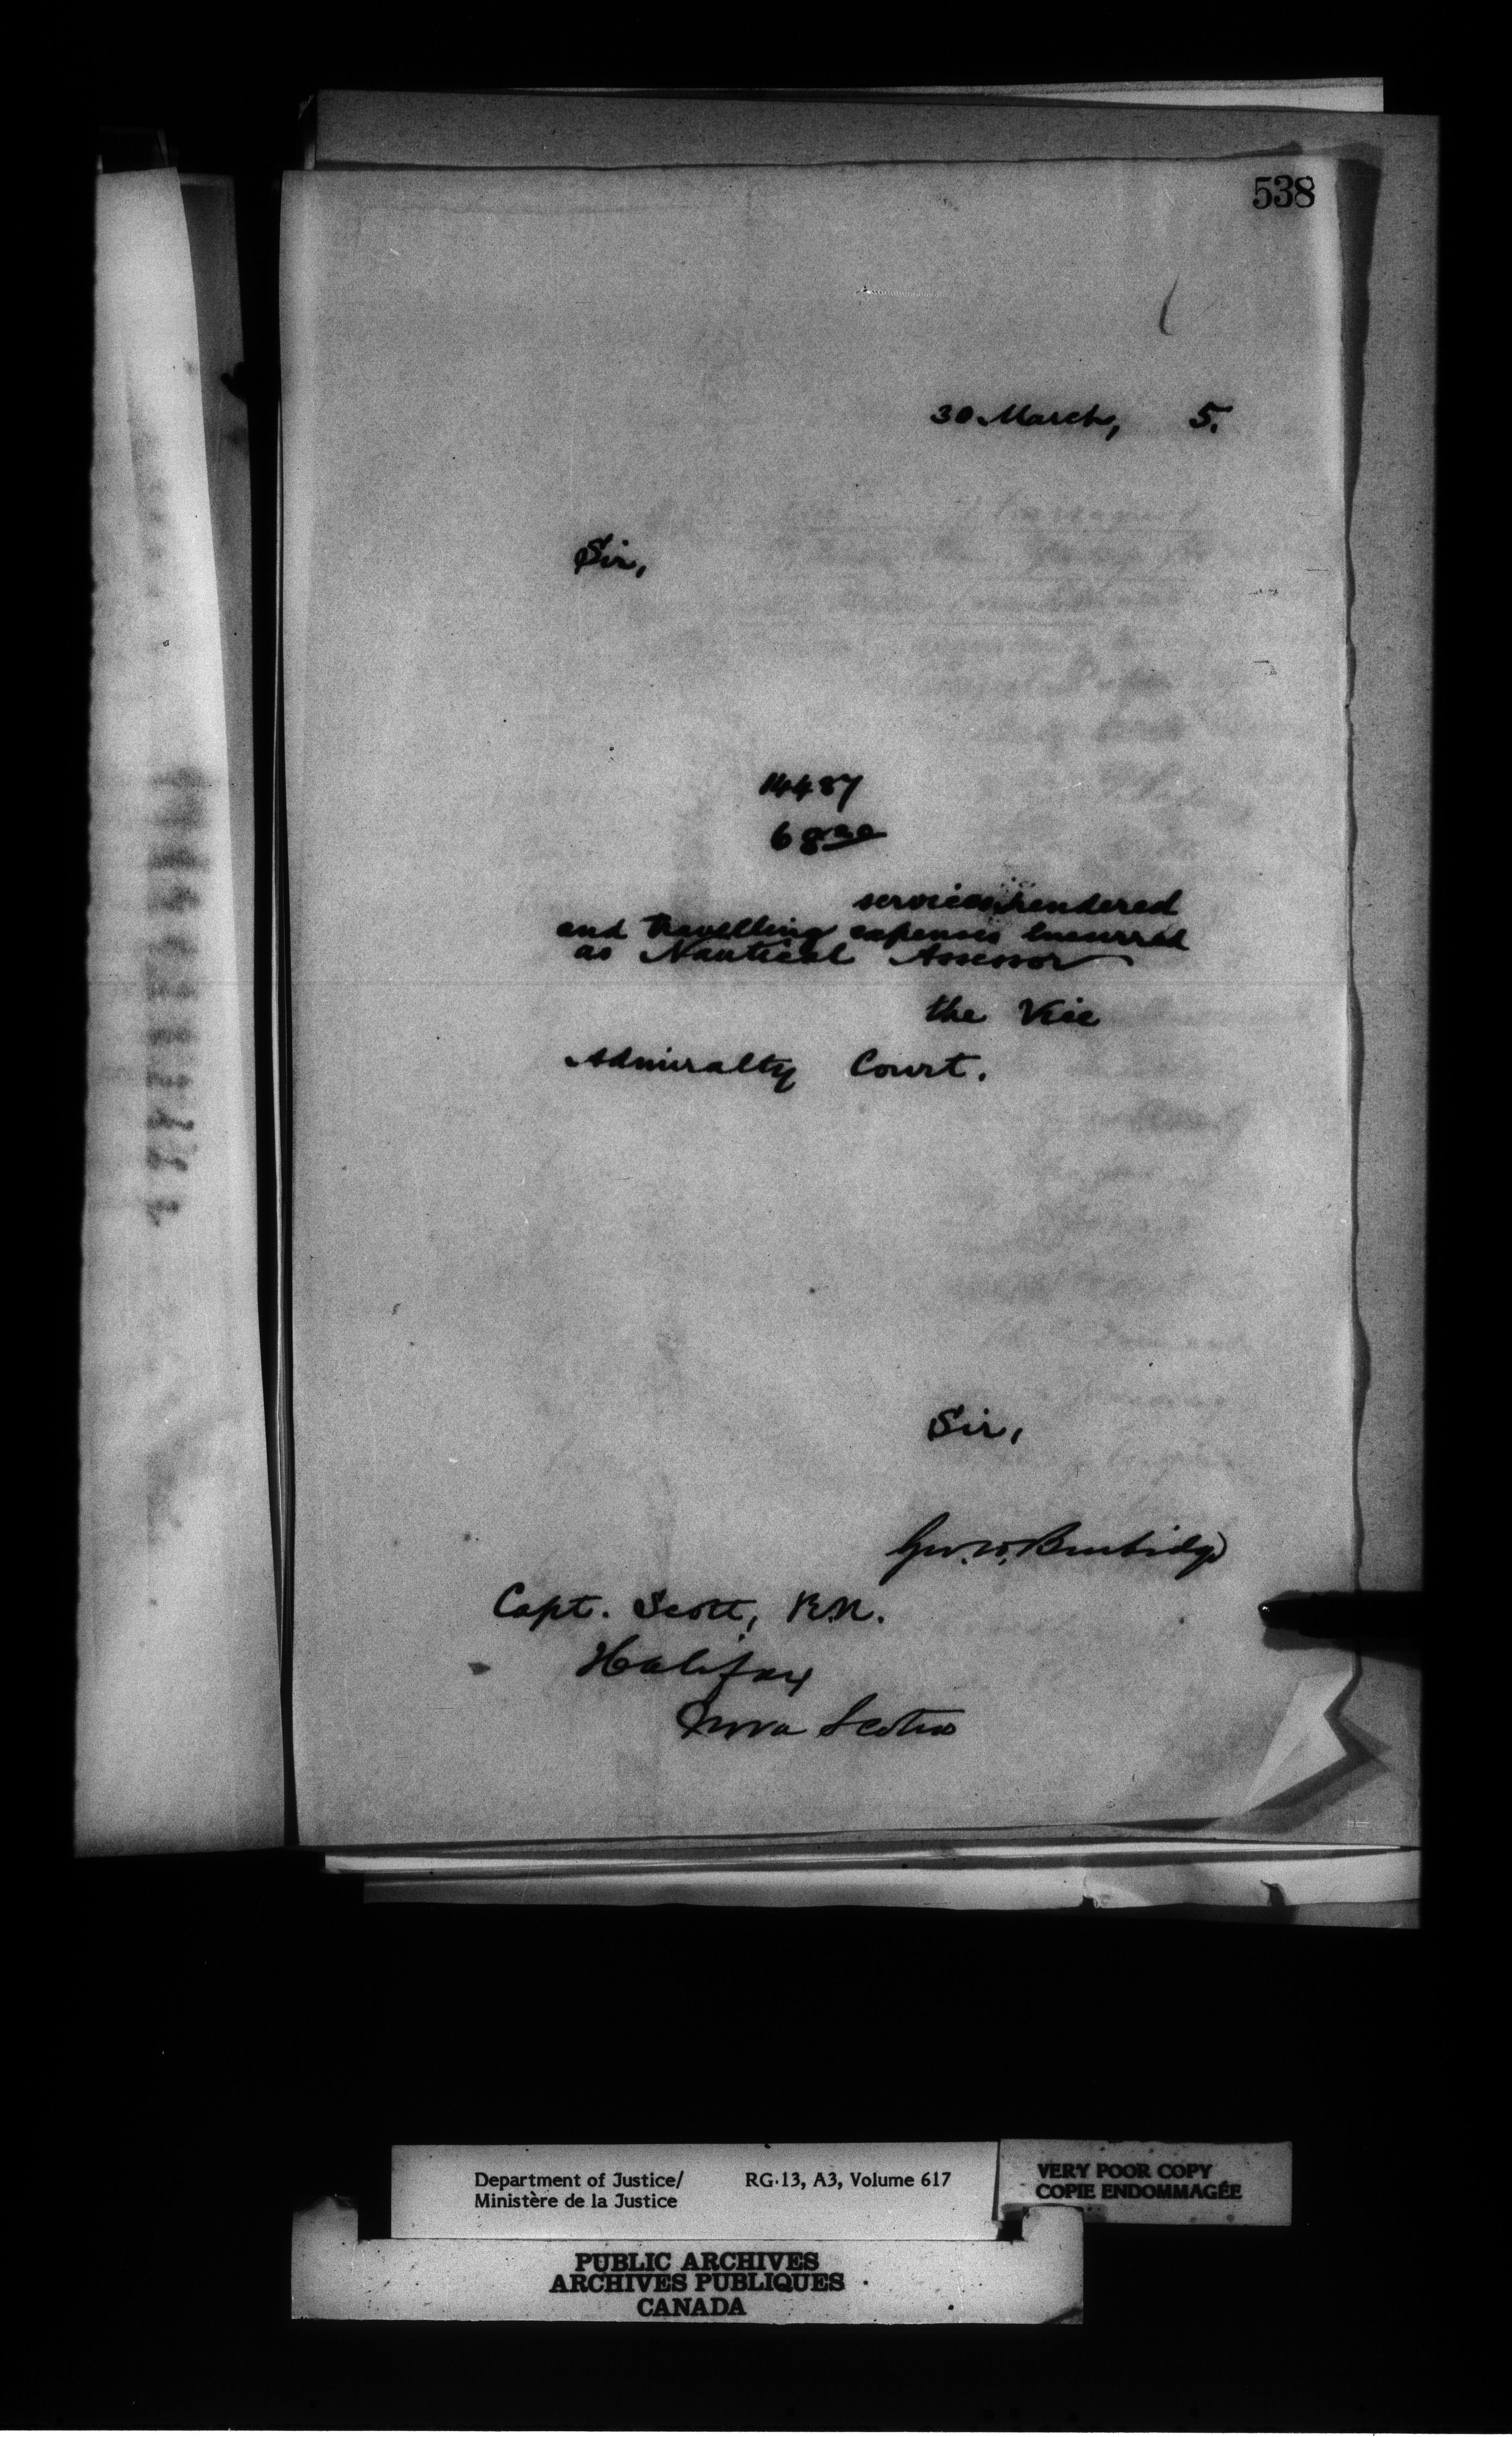 538
30 March, 5.
Sir,
14487
68.00
services rendered
and travelling expenses incurred
as Nautical Assessor
the Vice
Admiralty Court.
Sir,
Geo. W. Burbidge
Capt. Scott, R.N.
Halifax
Nova Scotia
Department of Justice/ RG·13, A3, Volume 617
Ministère de la Justice
VERY POOR COPY
COPIE ENDOMMAGÉE
PUBLIC ARCHIVES
ARCHIVES PUBLIQUES
CANADA